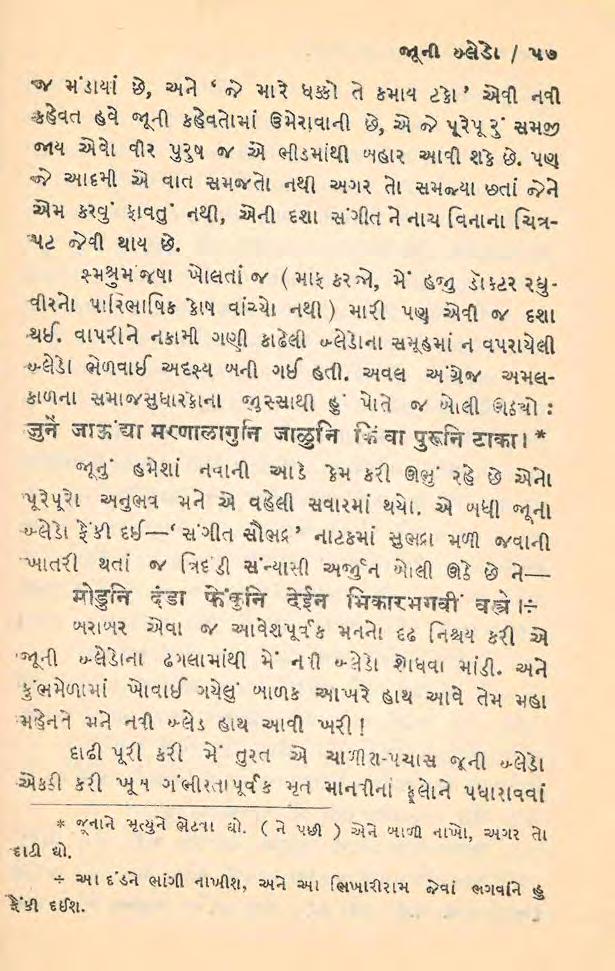 જૂની બ્લેડો / ૫૭
જ મંડાયાં છે, અને ‘ જે મારે ધક્કો તે કમાય ટકો’ એવી નવી
કહેવત હવે જૂની કહેવતોમાં ઉમેરાવાની છે, એ જે પૂરેપૂરું સમજી
જાય એવો વીર પુરુષ જ એ ભીડમાંથી બહાર આવી શકે છે. પણ
જે આદમી એ વાત સમજતો નથી અગર તો સમજ્યા છતાં જેને
એમ કરવું ફાવતું નથી, એની દશા સંગીત ને નાચ વિનાના ચિત્ર-
પટ જેવી થાય છે.
શ્મશ્રુમંજષા ખોલતાં જ ( માફ કરજો, મેં હજી ડૉકટર રઘુ-
વીરનો પારિભાષિક કોષ વાંચ્યો નથી ) મારી પણ એવી જ દશા
થઈ. વાપરીને નકામી ગણી કાઢેલી બ્લેડોના સમૂહમાં ન વપરાયેલી
બ્લેડો ભેળવાઈ અદૃશ્ય બની ગઈ હતી. અવલ અંગ્રેજ અમલ-
કાળના સમાજસુધારકોના જુસ્સાથી હું પોતે જ બોલી ઊઠ્યો :
जुनें जाऊंद्या मरणालागुनि जाळुनि किंवा पुरूनि टाका। *
જૂનું હમેશાં નવાની આડે કેમ કરી ઊભું રહે છે એનો
પૂરેપૂરો અનુભવ મને એ વહેલી સવારમાં થયો. એ બધી જૂના
બ્લેડો ફેંકી દઈ—‘ સંગીત સૌભદ્ર ’ નાટકમાં સુભદ્રા મળી જવાની
ખાતરી થતાં જ ત્રિદંડી સંન્યાસી અર્જુન બોલી ઊઠે છે ને—
मोडुनि दंडा फेंकुनि देईन भिकारभगवीं वस्त्रे।÷
બરાબર એવા જ આવેશપૂર્વક મનનો દૃઢ નિશ્ચય કરી એ
જૂની બ્લેડોના ઢગલામાંથી મેં નવી બ્લેડો શોધવા માંડી. અને
કુંભમેળામાં ખોવાઈ ગયેલું બાળક આખરે હાથ આવે તેમ મહા
મહેનતે મને નવી બ્લેડ હાથ આવી ખરી !
દાઢી પૂરી કરી મેં તુરત એ ચાળીશ-પચાસ જૂની બ્લેડો
એકઠી કરી ખૂબ ગંભીરતાપૂર્વક મૃત માનવીનાં ફૂલોને પધારાવવાં
* જૂનાને મૃત્યુને ભેટવા દો. ( ને પછી ) એને બાળી નાખો, અગર તો
દાટી દો.
÷ આ દંડને ભાંગી નાખીશ, અને આ ભિખારીરામ જેવાં ભગવાંને હું
ફેંકી દઈશ.